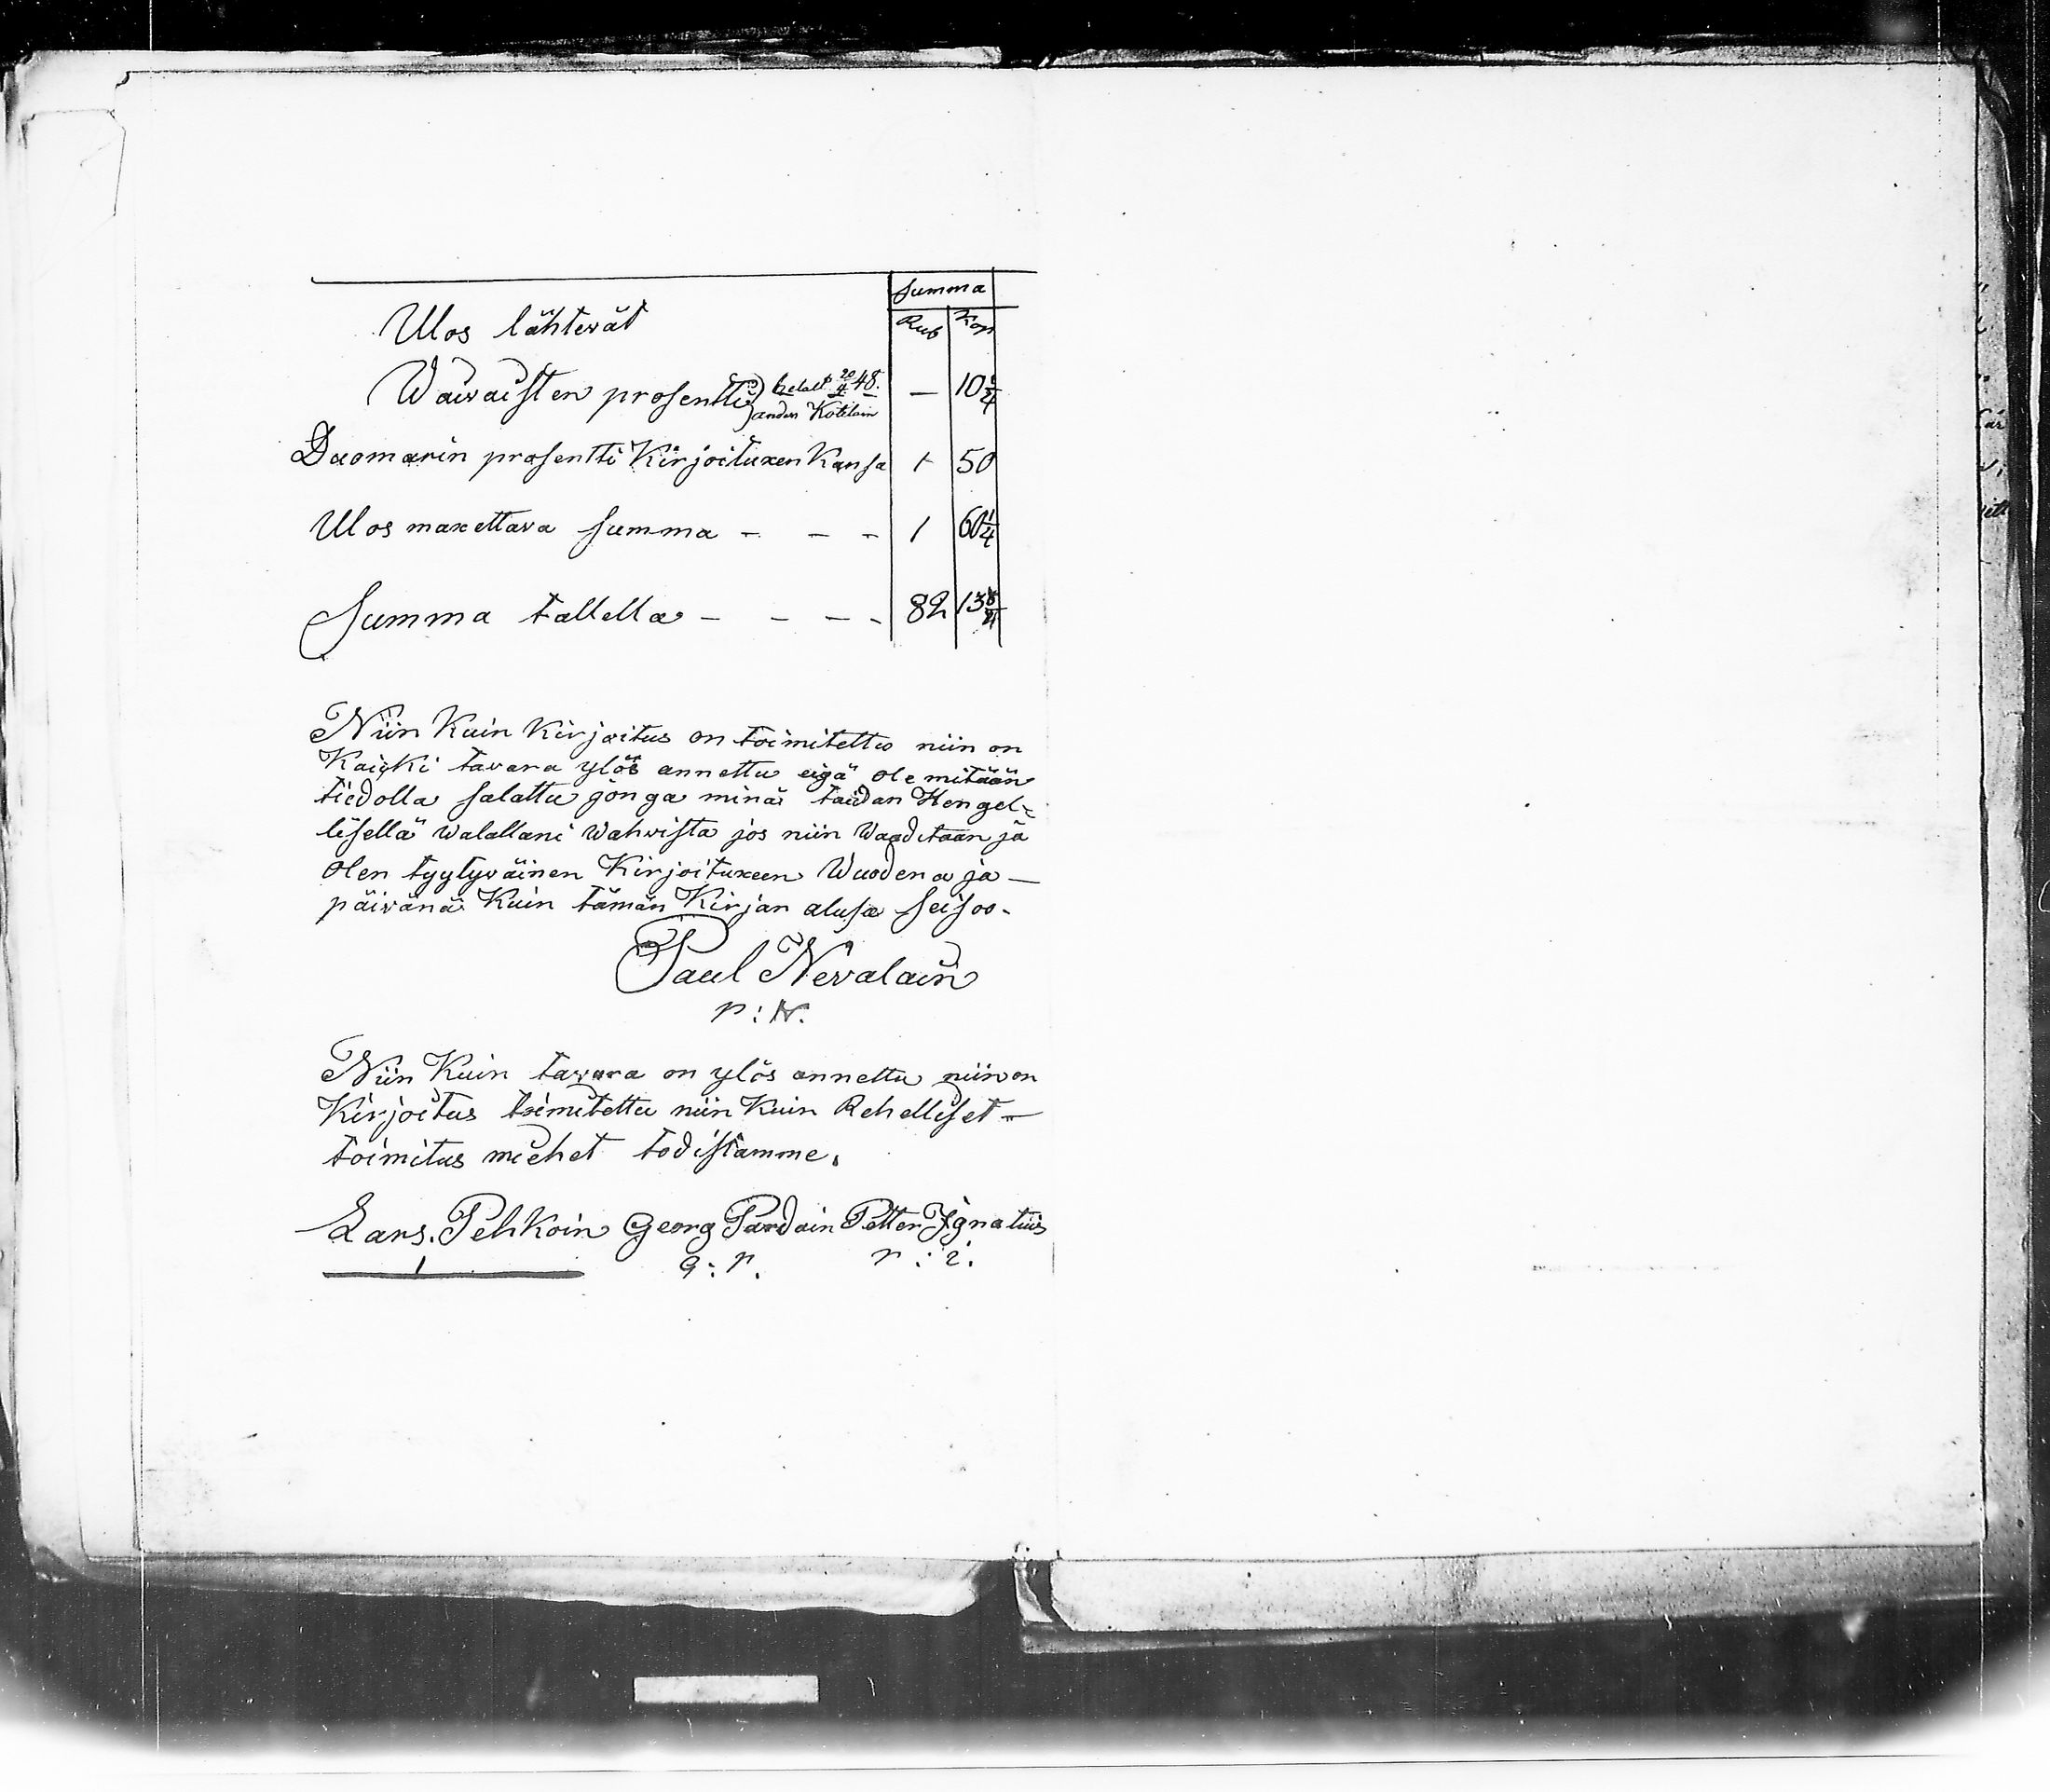 Summa
Ulos lähtevät Rub Kop
Waivaisten prosentti betalt 20/4 48. — 10 1/4
anders Kotilain
Duomarin prosentti Kirjoituxen Kansa 1 50
Ulos maxettava Summa - - - 1 60 1/4
Summa tallella - - - - 82 13
Niin Kuin Kirjoitus on toimitettu niin on
Kaicki tavara ylös annettu eigä ole mitään
tiedolla salattu jonga minä taidan Hengel-
lisellä walallani wahvista jos niin Waaditaan ja
olen tyytyväinen Kirjoituxeen Wuodena ja —
päivänä Kuin tämän Kirjan alusa seisoo.
Paul Nevalain
P: N.
Niin Kuin tavara on ylös annettu niin on
Kirjoitus toimitettu niin Kuin Rehelliset —
toimitus miehet todistamme.
Lars. Pehkoin Georg Pardain Petter Ignatius
G: P. P: i.